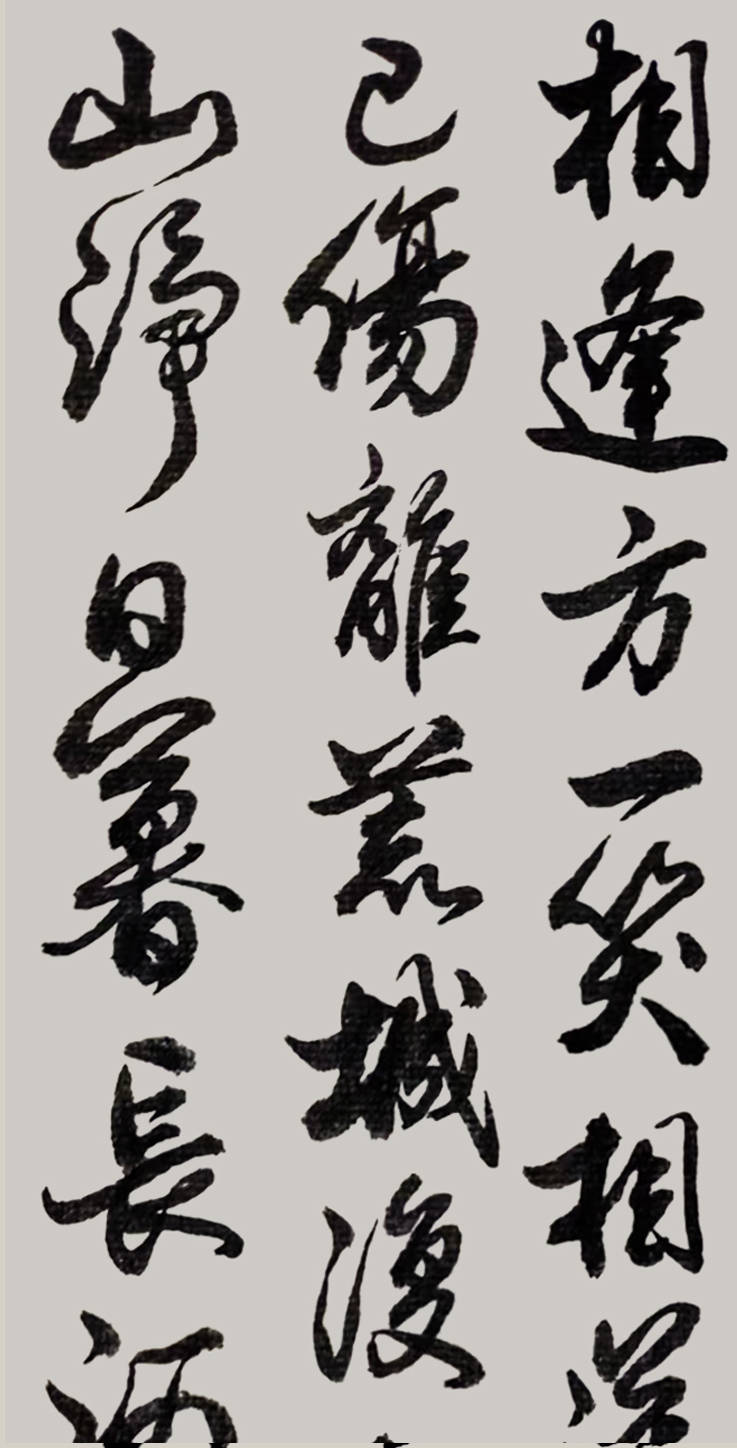 相逢方一笑相
已傷離荒城復
山静日暮長